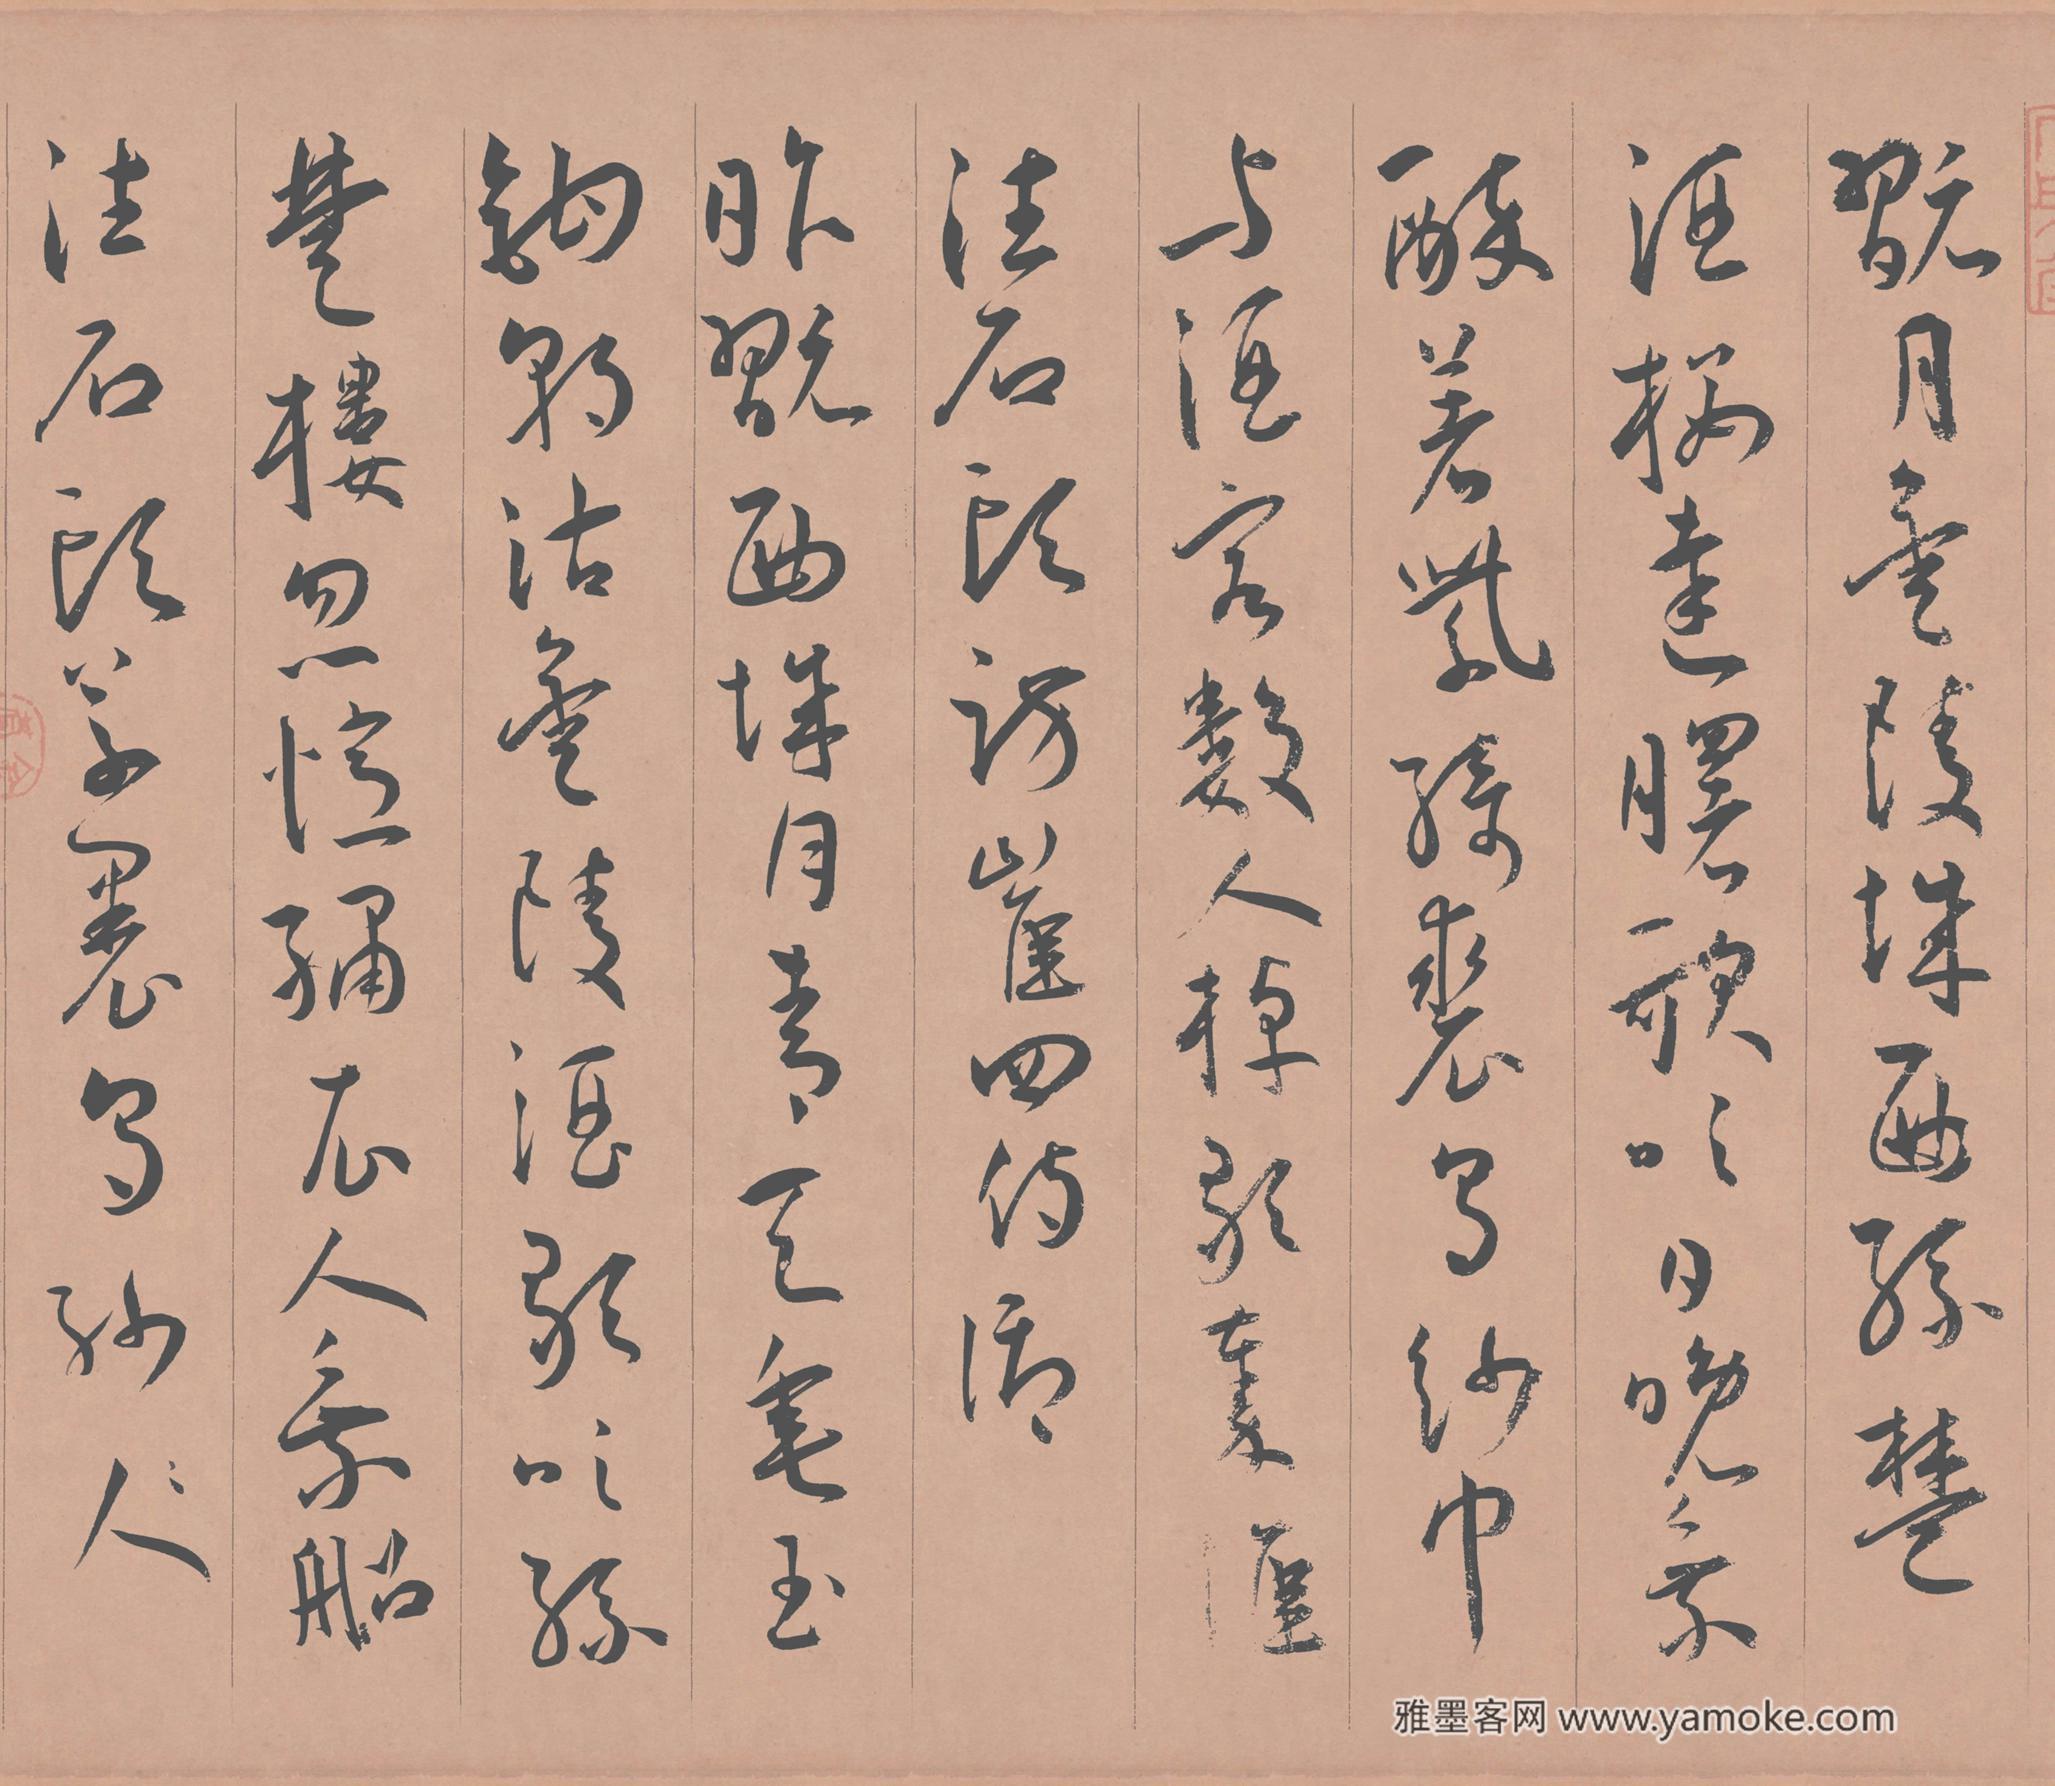 翫月金陵城西孫楚
酒樓達曙歌吹日晚乘
醉著紫綺裘烏紗巾
与酒客數人棹歌秦淮
往石頭訪崔四侍御
昨翫西城月青天垂玉
鉤朝沽金陵酒歌吹孫
楚樓忽憶繡衣人乘船
往石頭草裹烏紗人
雅墨客网 www.yamoke.com